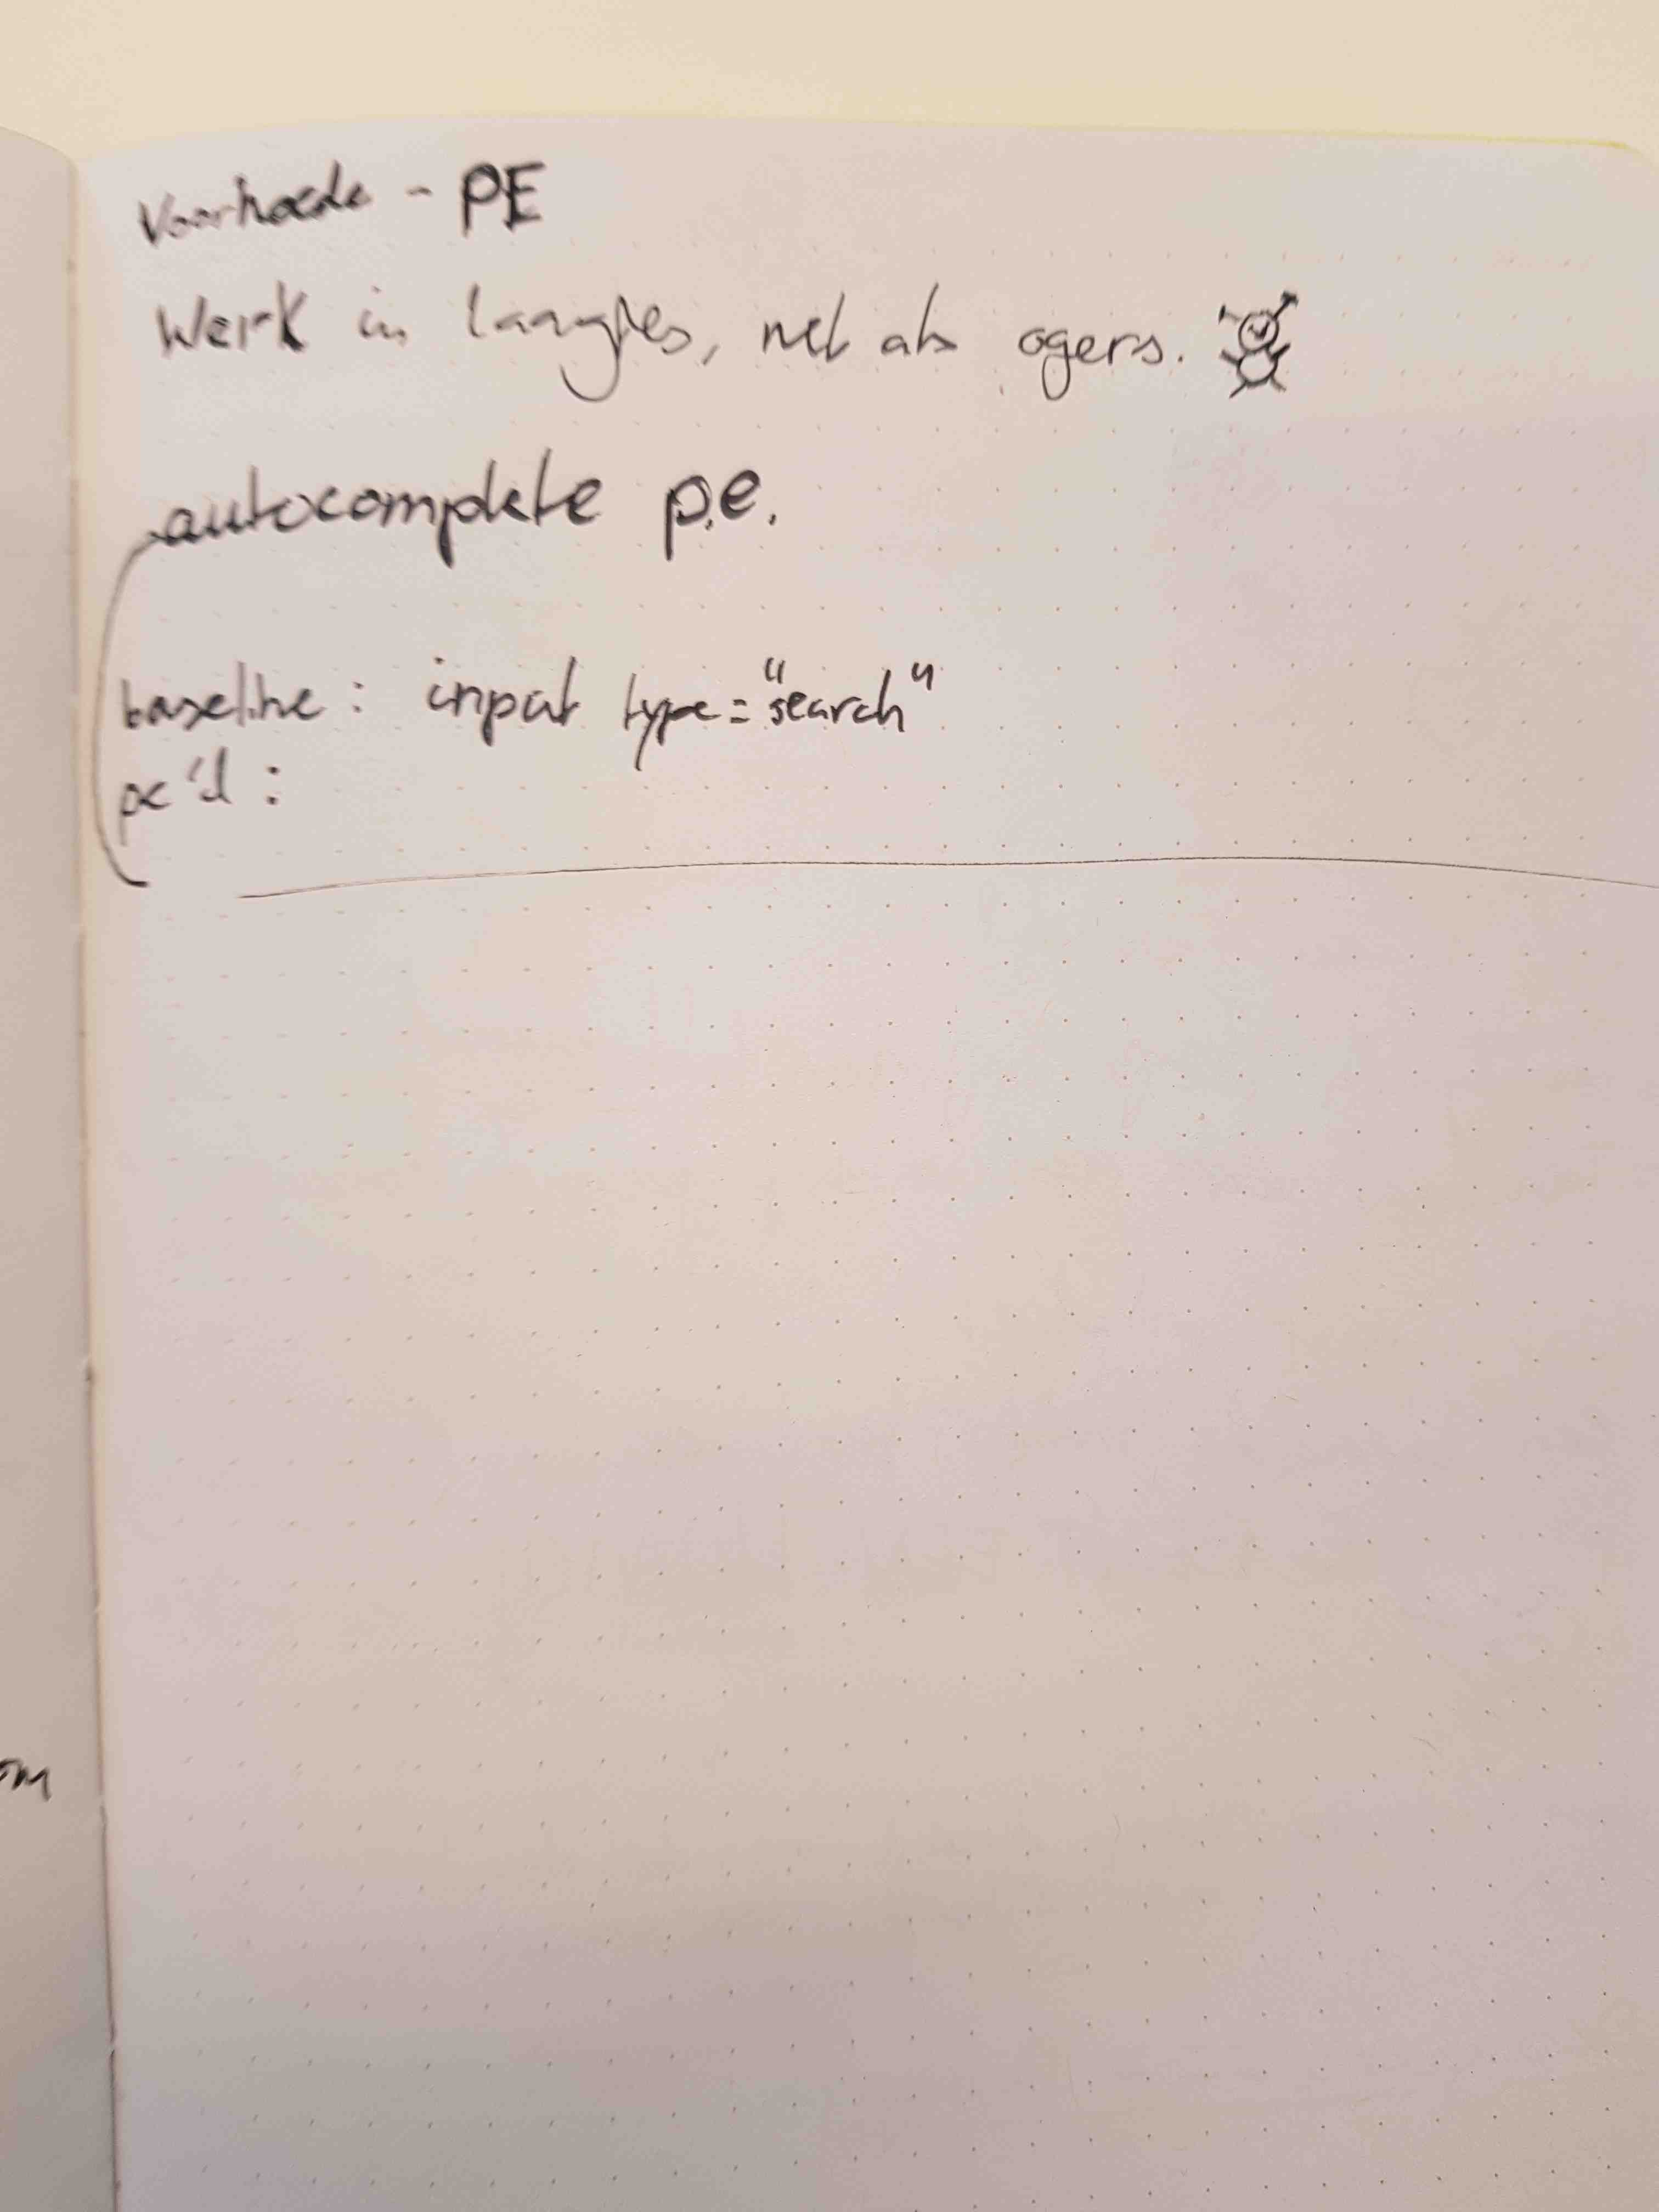 Voorhoede - PE
Werk in laagjes, net als ogers.
autocomplete p.e.
baseline : input type="search"
pe'd :
om